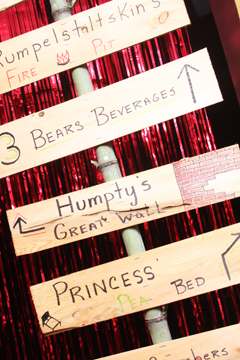 Rumpelstaltskin's
FIRE PIT
3 BEARS BEVERAGES
Humpty's
GREAT Wall
PRINCESS'
PEA BED